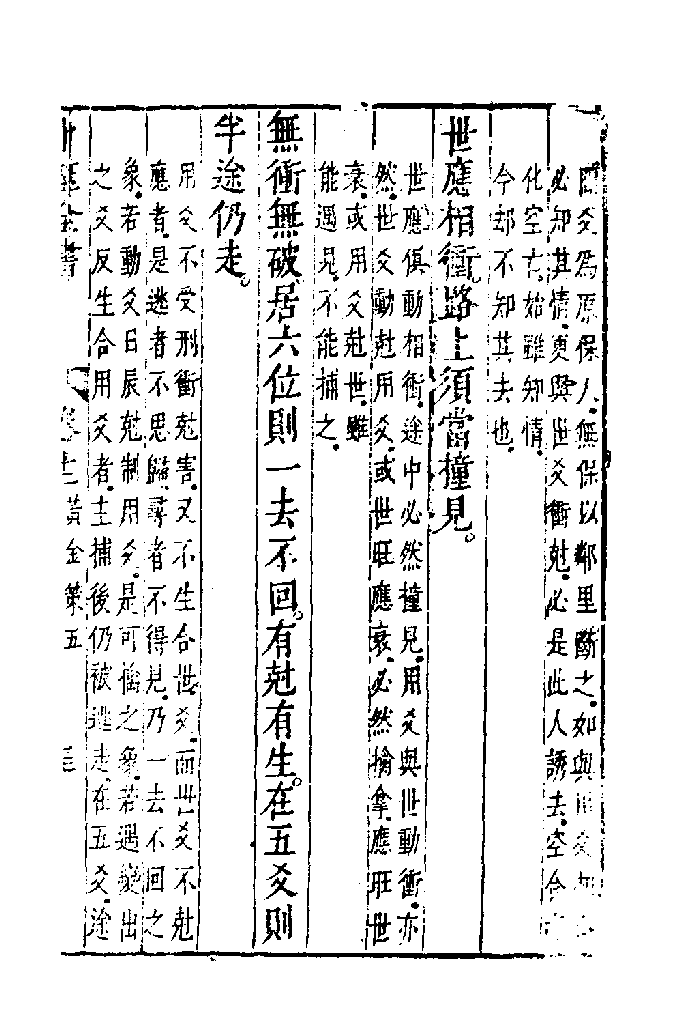 爻為原保人。無保以鄰里斷之。如與用爻
必知其情。更與世爻衝尅。必是此人誘去。空合
化空亡。始雖知情。
今却不知其去也。
世應相衝。路上須當撞見。
世應俱動相衝。途中必然撞見。用爻與世動衝。亦
然。世爻動尅用爻。或世旺應衰。必然擒拿。應旺世
衰。或用爻尅世。雖
能遇見。不能捕之。
無衝無破。居六位則一去不回。有尅有生。在五爻則
半途仍走。
用爻不受刑衝尅害。又不生合世爻。而世爻不尅
應者。是逃者不思歸。尋者不得見。乃一去不回之
象。若動爻日辰尅制用爻。是可擒之象。若遇變出
之爻反生合用爻者。主捕後仍被逃走。在五爻。途
全書 卷十二 黃金策五